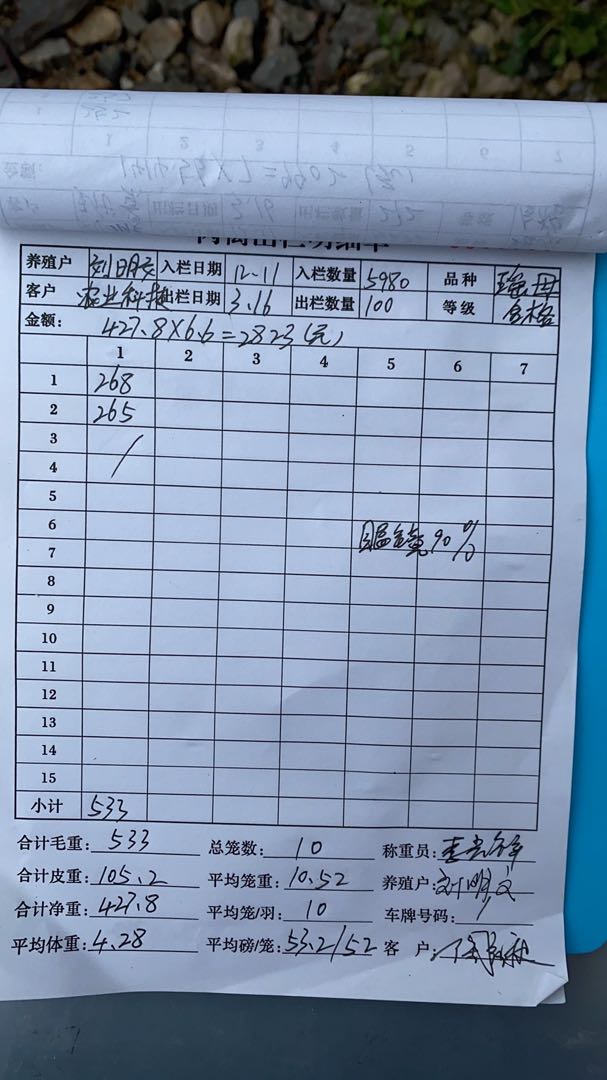 肉禽出栏明细单
养殖户 刘明文 入栏日期 12-11 入栏数量 5980 品种 瑶母
客户 农业科技 出栏日期 3.16 出栏数量 100 等级 合格
金额: 427.8×6.6=2823(元)
1 2 3 4 5 6 7
1 268
2 265
3 /
4
5
6
7 90%
8
9
10
11
12
13
14
15
小计 533
合计毛重: 533 总笼数: 10 称重员:
合计皮重: 105.2 平均笼重: 10.52 养殖户: 刘明文
合计净重: 427.8 平均笼/羽: 10 车牌号码: /
平均体重: 4.28 平均磅/笼: 53.2/52 客 户: